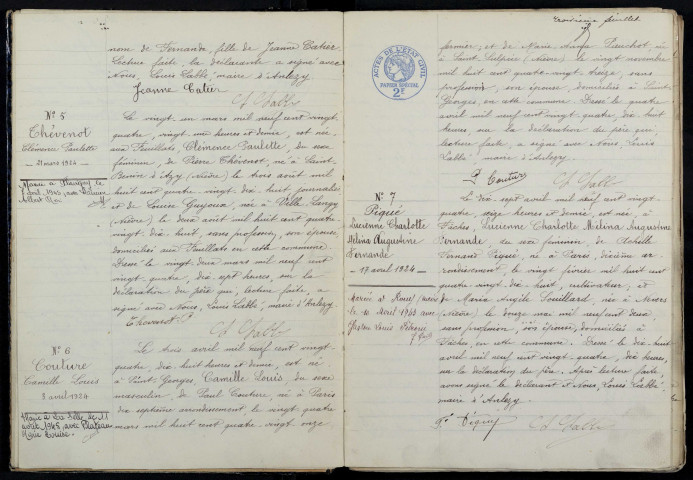 nom de Fernande, fille de Jeanne Catier.
Lecture faite, la déclarante a signé avec
Nous, Louis Labbé, maire d'Anlezy
Jeanne Catier
L. Labbé
N° 5
Thévenot
Clémence Paulette
21 mars 1924
Mariée à
avril 1945, avec
Le vingt un mars mil neuf cent vingt
quatre, vingt une heures et demie, est née
aux Feuillats, Clémence Paulette, du sexe
féminin, de Pierre Thévenot, né à Saint
Benin d'Azy (Nièvre) le trois août mil
huit cent quatre-vingt-dix-huit journalier
et de Louise Guyoux, née à Ville Langy
(Nièvre) le deux août mil huit cent quatre
vingt-dix-huit, sans profession, son épouse
domiciliés aux Feuillats en cette commune.
Dressé le vingt deux mars mil neuf cent
vingt-quatre, dix sept heures, sur la
déclaration du père qui, lecture faite, a
signé avec Nous, Louis Labbé, maire d'Anlezy
Thevenot P.
L. Labbé
N° 6
Couture
Camille Louis
3 avril 1924
Marié à
avril 1945, avec
Le trois avril mil neuf cent vingt-
quatre, dix-huit heures et demie, est né
à Saint Georges, Camille Louis, du sexe
masculin, de Paul Couture, né à Paris
dix septième arrondissement, le vingt quatre
mars mil huit cent quatre-vingt onze
troisième feuillet
ACTES DE L'ETAT CIVIL
PAPIER SPECIAL
2F
fermier; et de Marie Pauchot, née
à Saint Sulpice (Nièvre) le vingt novembre
mil huit cent quatre-vingt-treize, sans
profession, son épouse, domiciliés à Saint
Georges, en cette commune. Dressé le quatre
avril mil neuf cent vingt-quatre, dix-huit
heures, sur la déclaration du père qui,
lecture faite, a signé avec Nous, Louis
Labbé, maire d'Anlezy.
P. Couture
L. Labbé
N° 7
Piquée
Lucienne Charlotte
Mélina Augustine
Fernande
17 avril 1924
Mariée à
le 10 Avril 1943 avec
Le dix sept avril mil neuf cent vingt-
quatre, seize heures et demie est née à
Fâches, Lucienne Charlotte Mélina Augustine
Fernande, du sexe féminin, de Achille
Fernand Piqué, né à Paris, dixième ar-
rondissement, le vingt février mil huit cent
quatre vingt-dix-huit, cultivateur, et
de Maria Angèle Souillard, née à Nevers
(Nièvre) le douze mai mil neuf cent deux,
sans profession, son épouse, domiciliés à
Fâches, en cette commune. Dressé le dix-huit
avril mil neuf cent vingt-quatre, dix heures,
sur la déclaration du père. Après lecture faite,
avons signé le déclarant et Nous, Louis Labbé
maire d'Anlezy.
L. Labbé